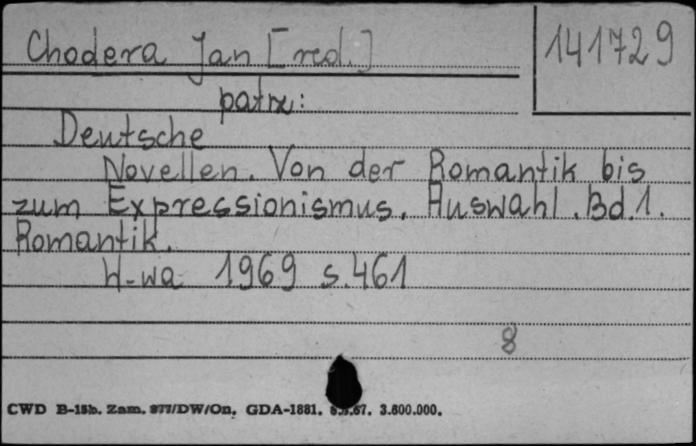 Chodera Jan [red.]
141729
patrz:
Deutsche
Novellen. Von der Romantik bis
zum Expressionismus. Auswahl. Bd.1.
Romantik.
W-wa 1969 s.461
8
CWD B-15b. Zam. 877/DW/On, GDA-1881. 67. 3.600.000.